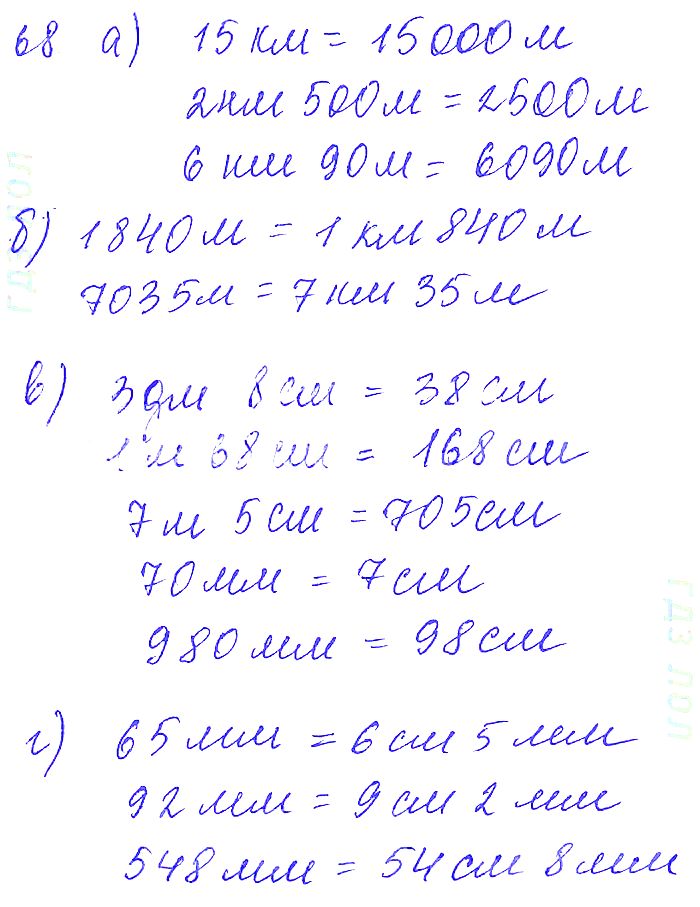 68 а) 15 км = 15000 м
2 км 500 м = 2500 м
6 км 90 м = 6090 м
б) 1840 м = 1 км 840 м
7035 м = 7 км 35 м
в) 3 дм 8 см = 38 см
1 м 68 см = 168 см
7 м 5 см = 705 см
70 мм = 7 см
980 мм = 98 см
г) 65 мм = 6 см 5 мм
92 мм = 9 см 2 мм
548 мм = 54 см 8 мм
гдз поп